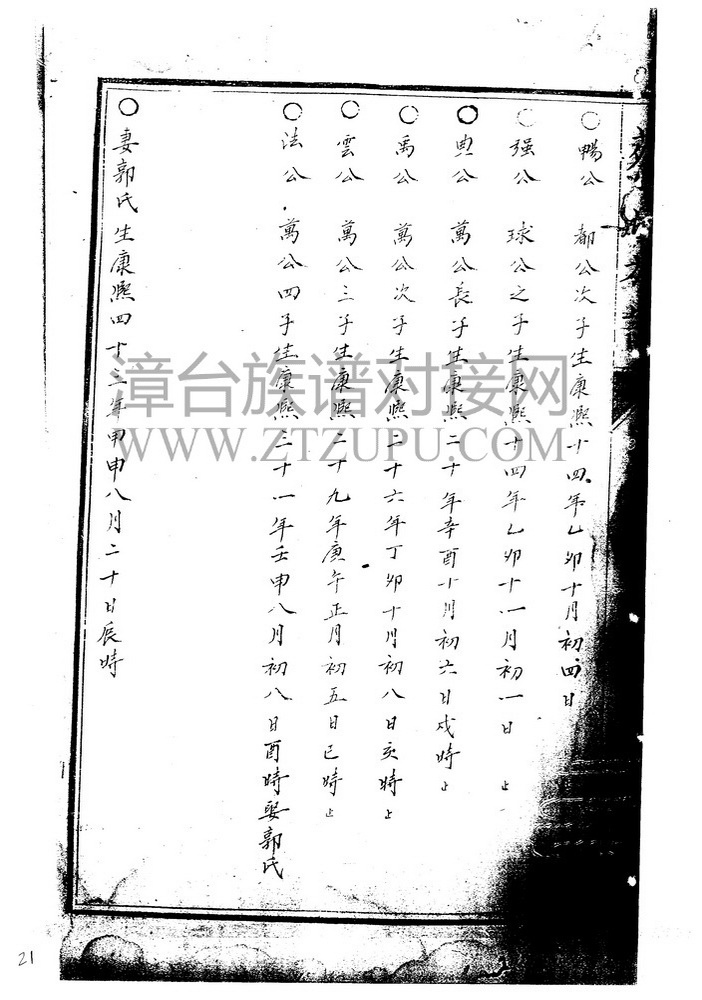 ○ 暢公 都公次子生康熙十四年乙卯十月初四日
○ 强公 球公之子生康熙十四年乙卯十一月初一日 止
○ 典公 萬公長子生康熙二十年辛酉十月初六日戌時 止
○ 禹公 萬公次子生康熙二十六年丁卯十月初八日亥時 止
○ 雲公 萬公三子生康熙二十九年庚午正月初五日巳時 止
○ 法公 萬公四子生康熙三十一年壬申八月初八日酉時娶郭氏
○ 妻郭氏生康熙四十三年甲申八月二十日辰時
漳台族谱对接网
WWW.ZTZUPU.COM
21